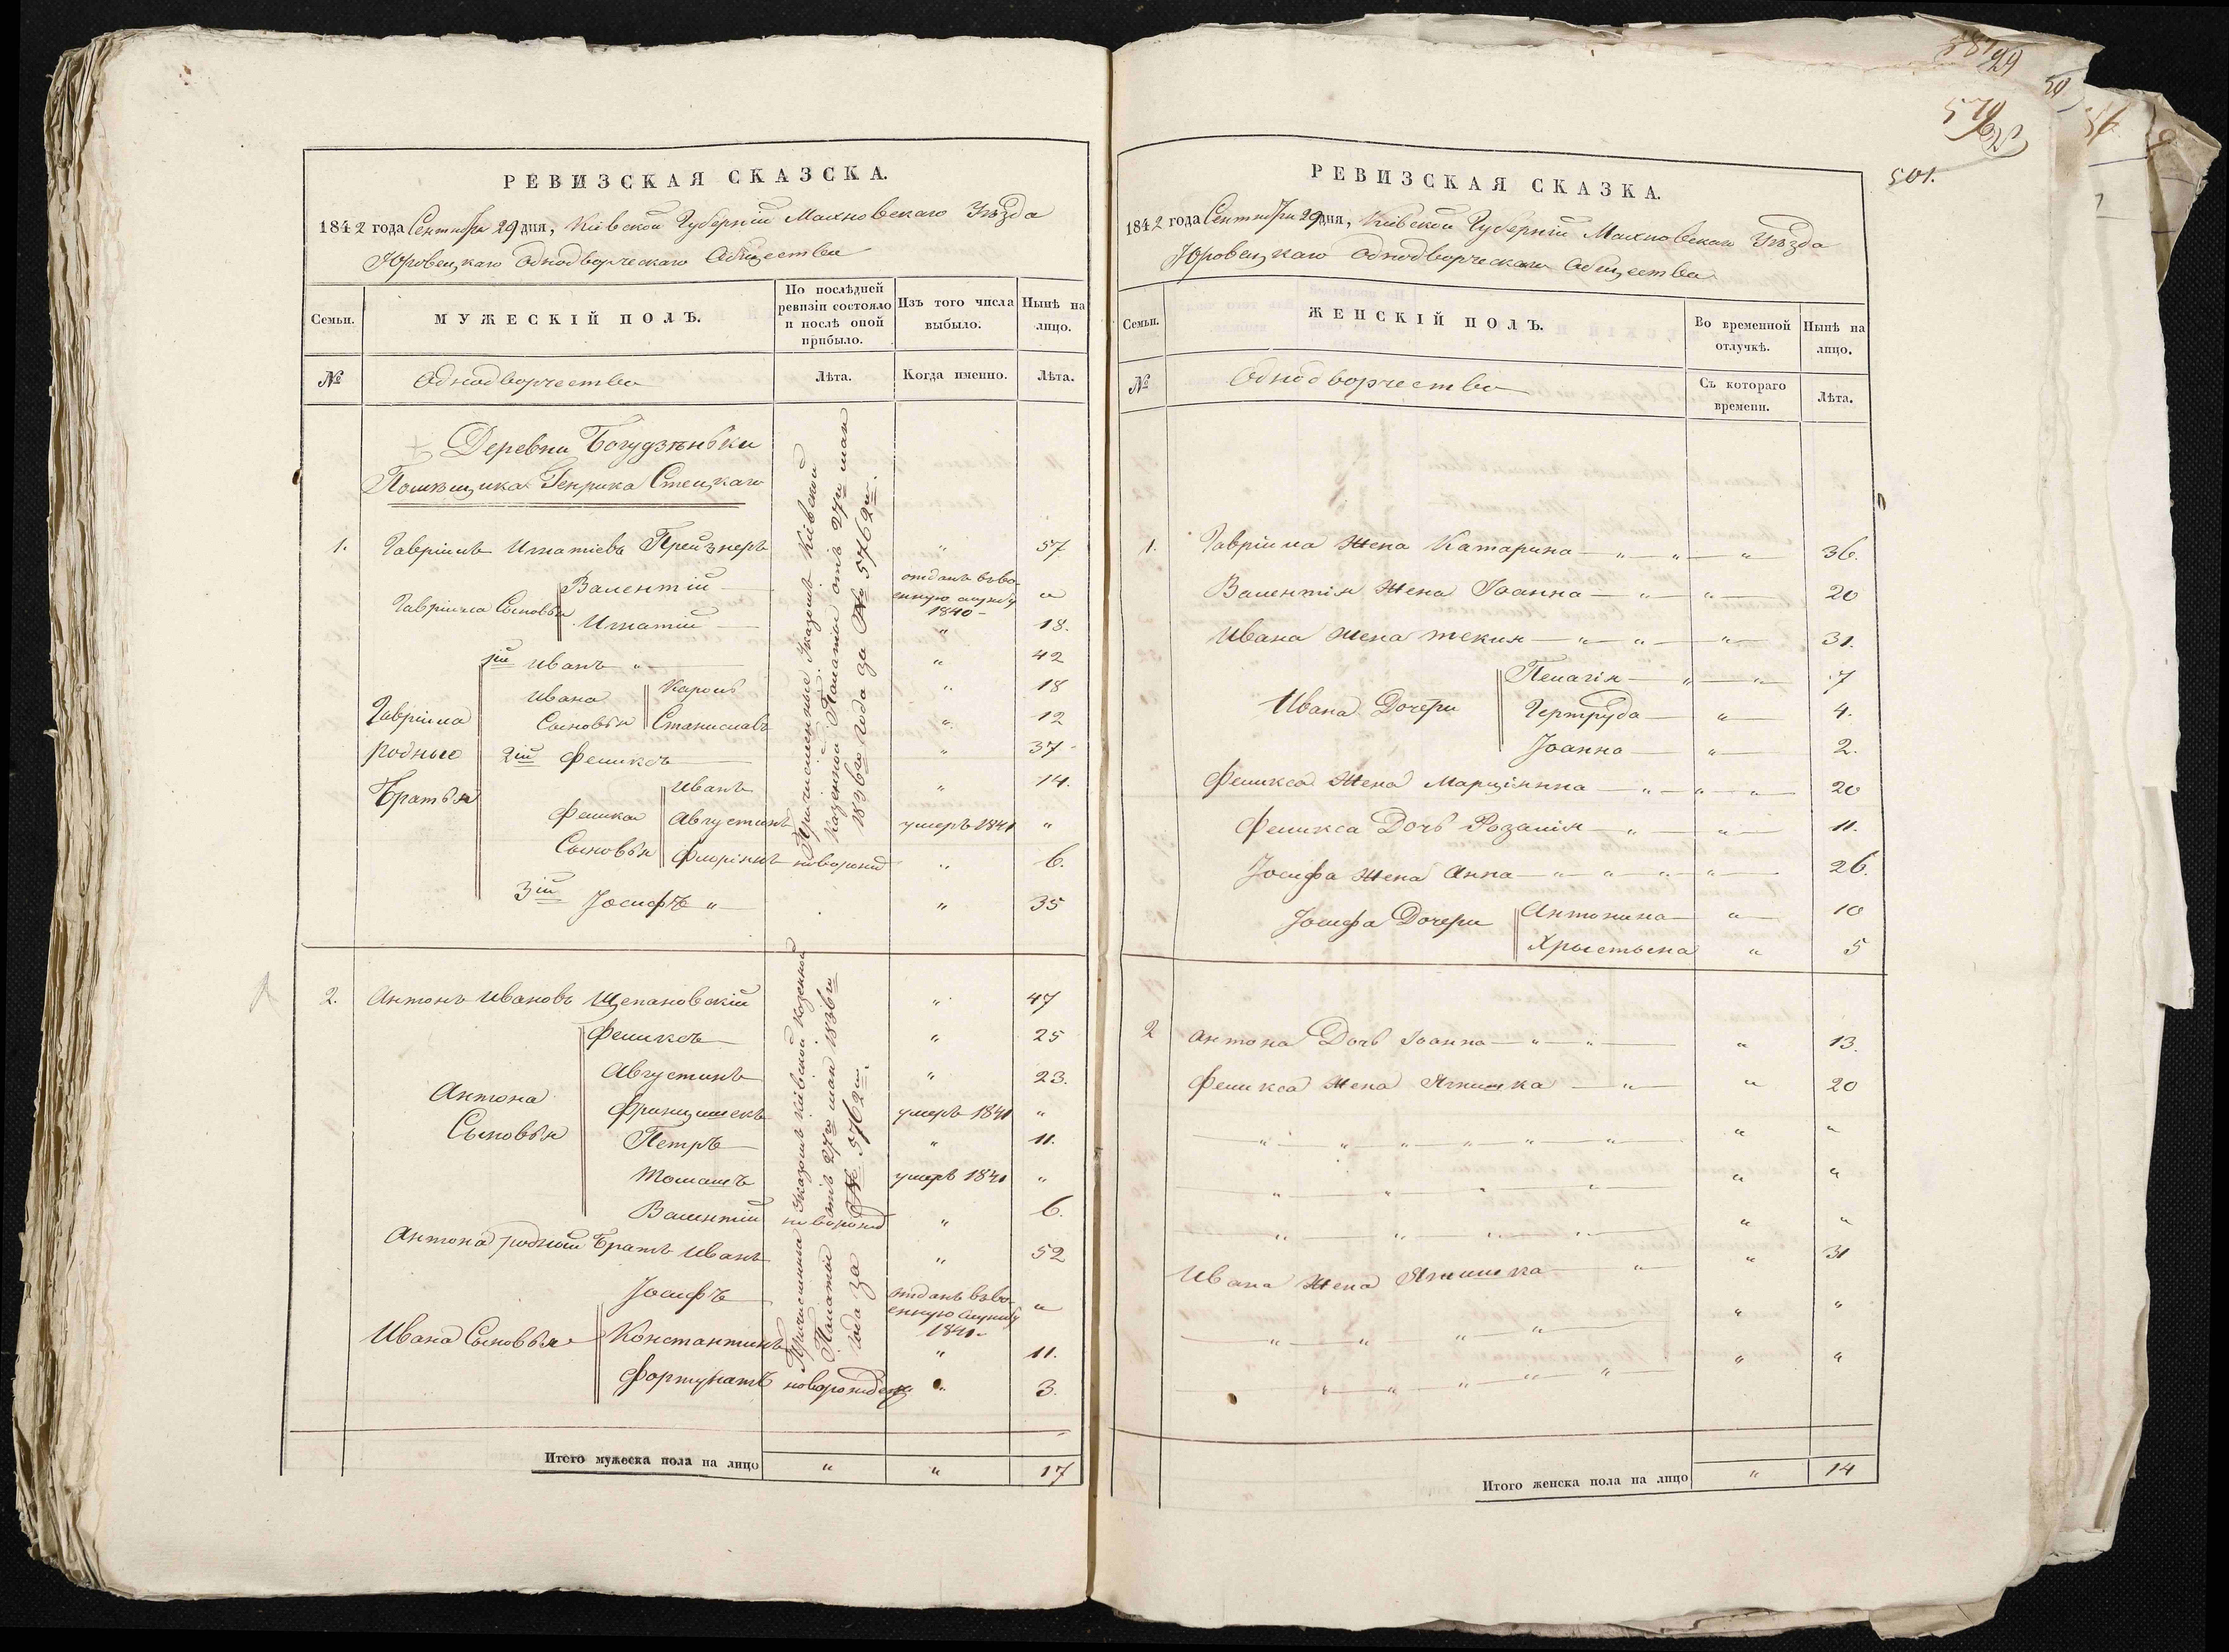 РЕВИЗСКАЯ СКАЗСКА.
1842 года Сентября 29 дня, Кіевской Губерніи Махновскаго Уѣзда
Юровецкаго Однодворческаго Общества
Семьи.
МУЖЕСКІЙ ПОЛЪ.
По послѣдней ревизіи состояло и послѣ оной прибыло.
Изъ того числа выбыло.
Нынѣ на лицо.
№
Однодворчество
Лѣта.
Когда именно.
Лѣта.
Деревни
Помѣщика Генрика Стецкаго
1. Гавріилъ Игнатіевъ " 57
Гавріила Сыновья
Валентій отданъ въ военную службу 1840 "
Игнатій " 18.
Гавріила родные Братья
1й Иванъ " " 42
Ивана Сыновья
Кароль " 18
Станиславъ " 12
2й Феликсъ " 37
Феликса Сыновья
Иванъ " 14.
Августинъ умеръ 1841 "
Флоріянъ новорожд " 6.
3ій Іосифъ " " 35
Причисленные Указомъ Кіевской
Казенной Палаты отъ 27го мая
1836го года за № 5762м.
2. Антонъ Ивановъ Щепановскій " 47
Антона Сыновья
Феликсъ " 25
Августинъ " 23.
Францишекъ умеръ 1841 "
Петръ " 11.
Томашъ умеръ 1841 "
Валентій новорожд " 6.
Антона родный Братъ Иванъ " 52
Ивана Сыновья
Іосифъ отданъ въ военную службу 1841 "
Константинъ " 11.
Фортунатъ новорожден. " 3.
Указомъ Кіевской Казенной
Палаты отъ 27го мая 1836го
года за № 5762м.
Итого мужеска пола на лицо " " 17
РЕВИЗСКАЯ СКАЗКА.
501.
1842 года Сентября 29 дня, Кіевской Губерніи Махновскаго Уѣзда
Юровецкаго Однодворческаго Общества
Семьи.
ЖЕНСКІЙ ПОЛЪ.
Во временной отлучкѣ.
Нынѣ на лицо.
№
Однодворчество
Съ котораго времени.
Лѣта.
1. Гавріила Жена Катарина " " " 36.
Валентія Жена Іоанна " " 20
Ивана Жена текля " " " 31.
Ивана Дочери
Пелагія " " 7
Гертруда " 4.
Іоанна " 2.
Феликса Жена Марціянна " " " 20
Феликса Дочь Розалія " " 11.
Іосифа Жена Анна " " " " 26.
Іосифа Дочери
Антонина " 10
Хрыстына " 5
2 Антона Дочь Іоанна " " " 13.
Феликса Жена Ягнишка " " 20
" " " " " " " "
" " " " " "
" " " " " "
Ивана Жена Ягнишка " " 31
" " " " " "
" " " " " "
Итого женска пола на лицо " 14